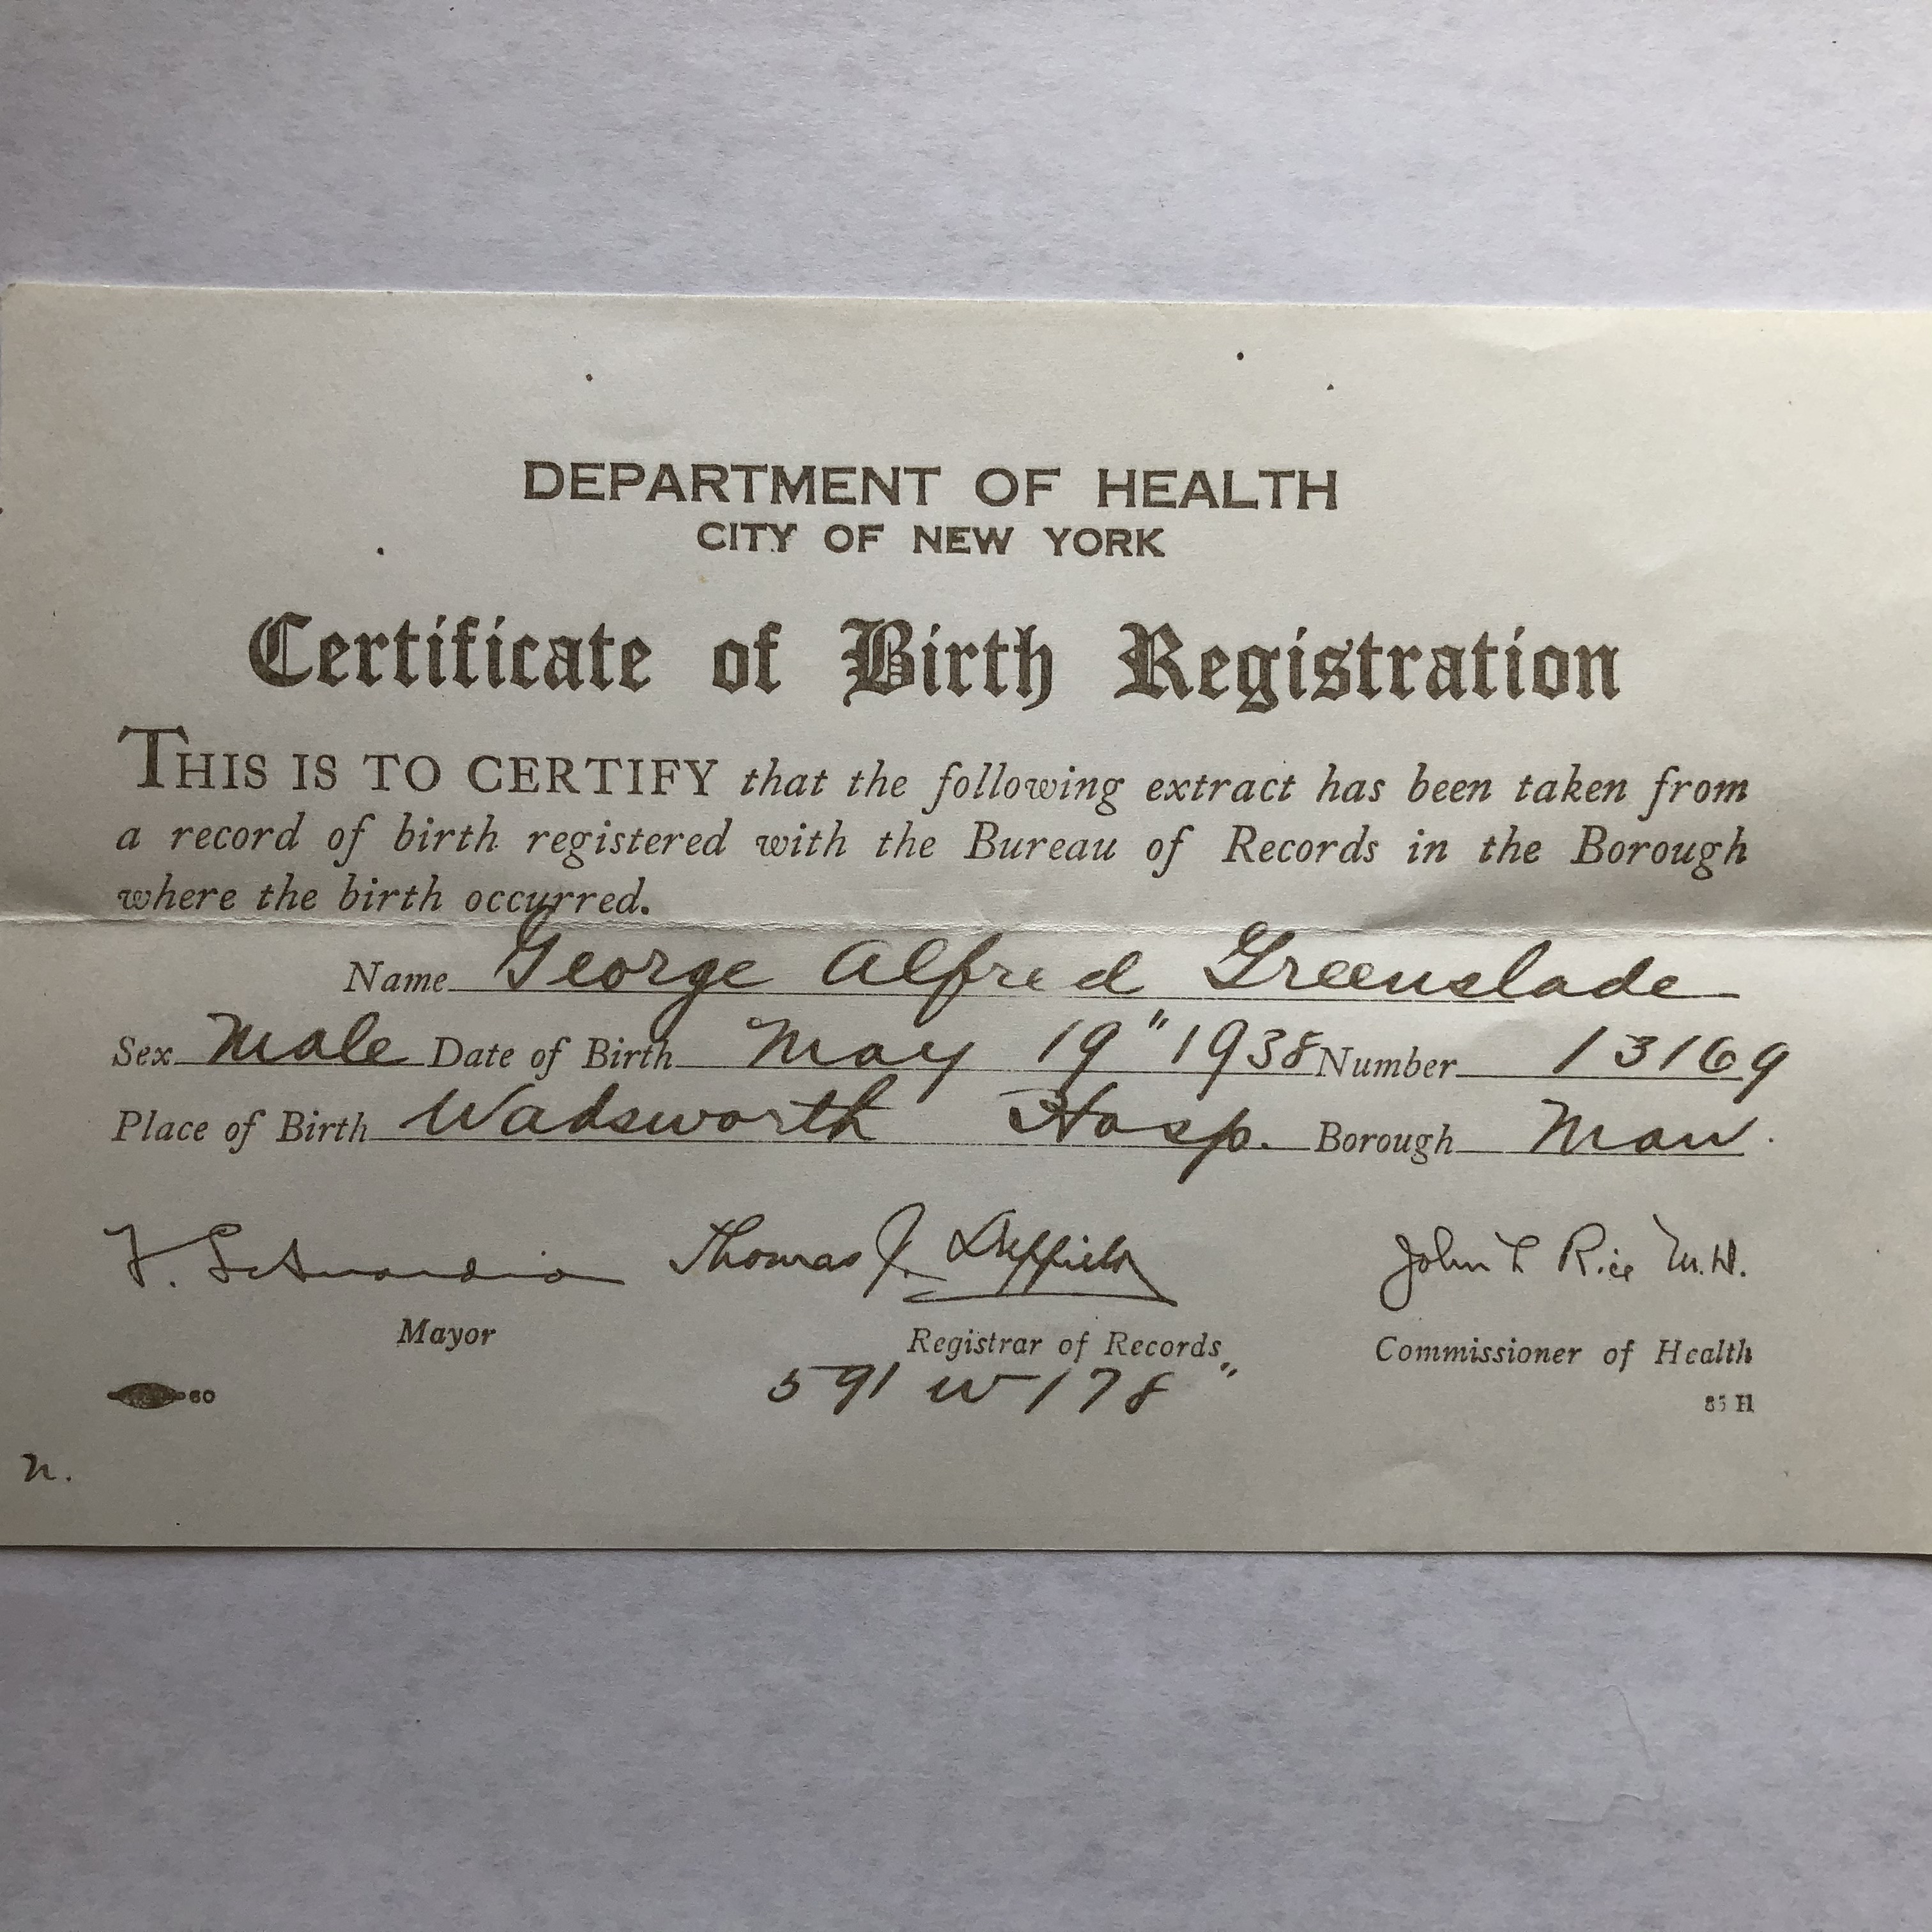 DEPARTMENT OF HEALTH
CITY OF NEW YORK
Certificate of Birth Registration
THIS IS TO CERTIFY that the following extract has been taken from
a record of birth registered with the Bureau of Records in the Borough
where the birth occurred.
Name George Alfred Greenslade
Sex Male Date of Birth May 19" 1938 Number 13169
Place of Birth Wadsworth Hosp. Borough Man.
F. LaGuardia Thomas J. Duffield John L Rice M.D.
Mayor Registrar of Records Commissioner of Health
591 W 178"
60 85 H
n.